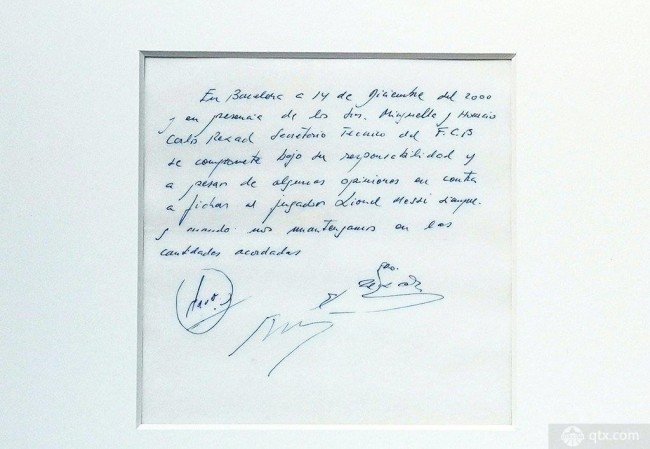 En Barcelona a 14 de Diciembre del 2000
y en presencia de los Srs. Minguella y Horacio
Carlo Rexach Secretario Tecnico del F.C.B
se compromete bajo su responsabilidad y
a pesar de algunas opiniones en contra
a fichar al jugador Lionel Messi siempre
y cuando nos mantengamos en las
cantidades acordadas
qtx.com